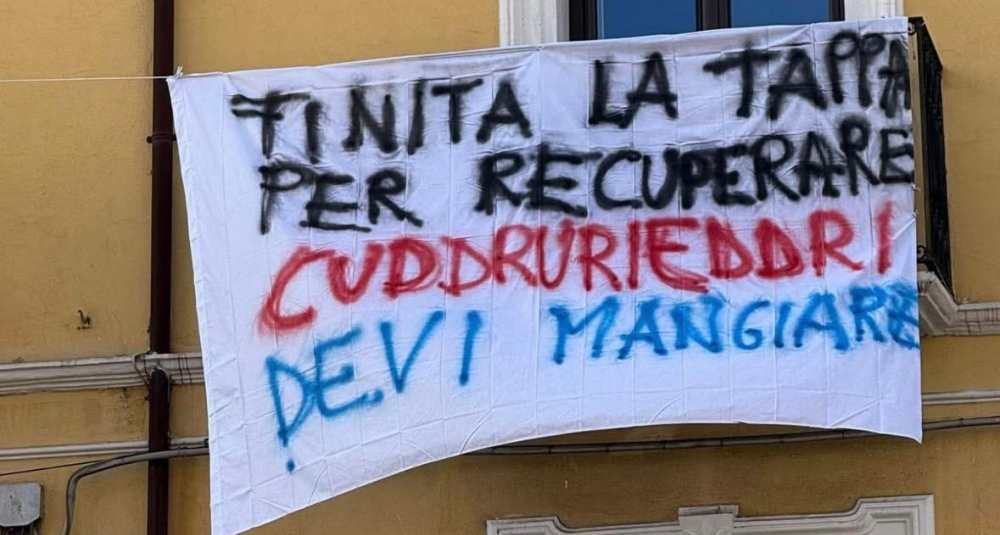 FINITA LA TAPPA
PER RECUPERARE
CUDDRURIEDDRI
DEVI MANGIARE